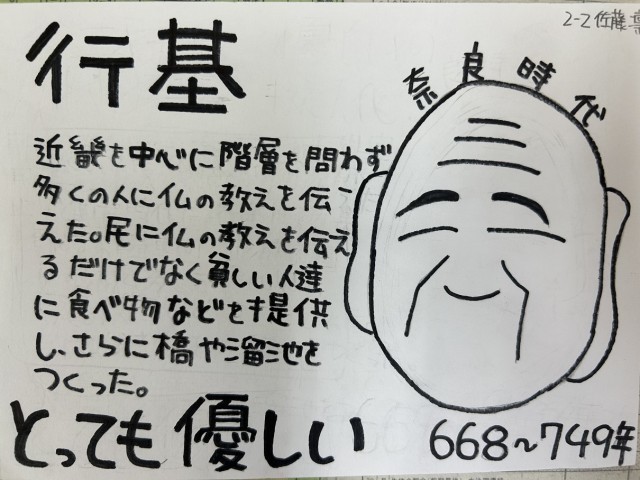 2-2 佐藤
行基
奈良時代
近畿を中心に階層を問わず
多くの人に仏の教えを伝
えた。民に仏の教えを伝え
るだけでなく貧しい人達
に食べ物などを提供
し、さらに橋や溜池を
つくった。
とっても優しい
668〜749年